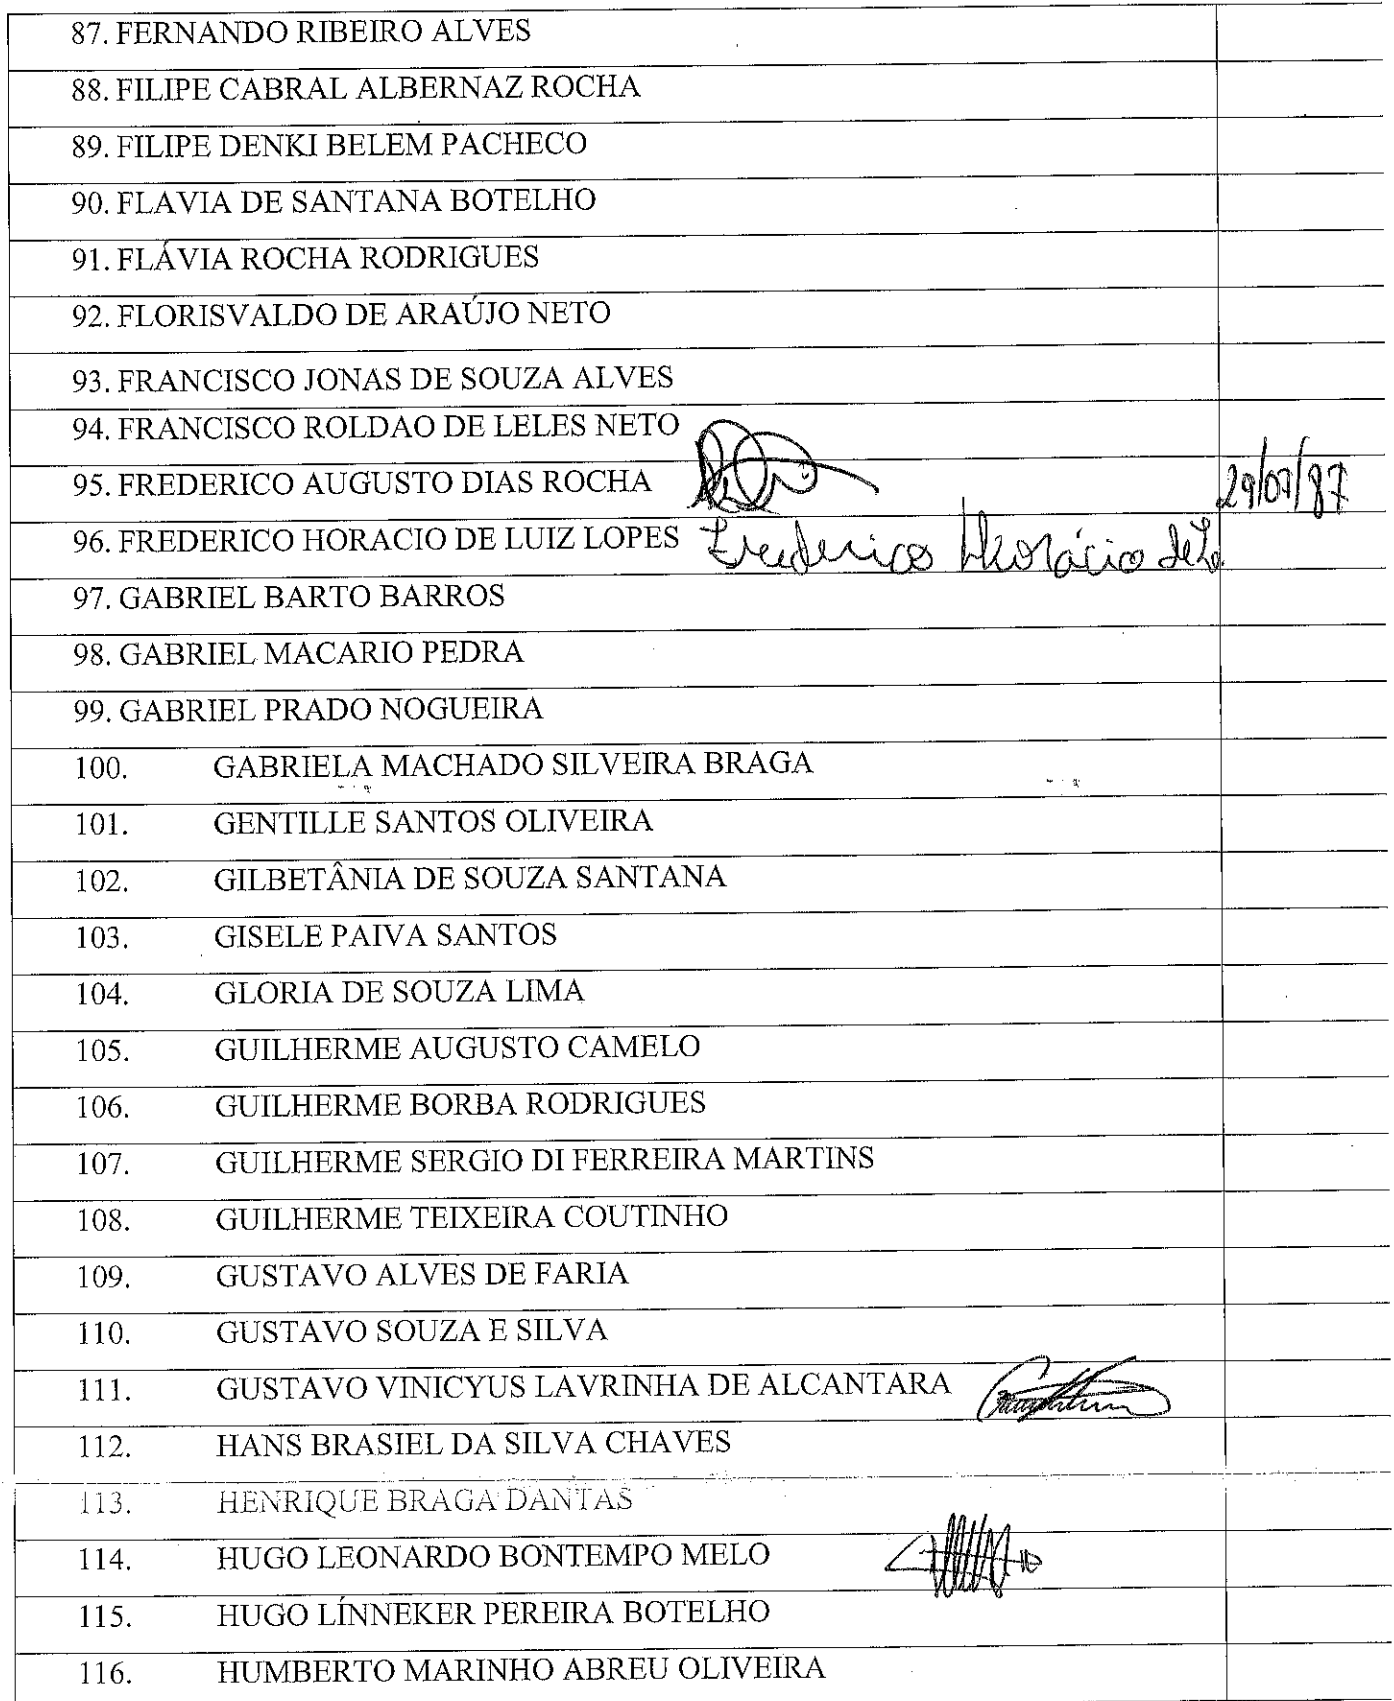 87. FERNANDO RIBEIRO ALVES
88. FILIPE CABRAL ALBERNAZ ROCHA
89. FILIPE DENKI BELEM PACHECO
90. FLAVIA DE SANTANA BOTELHO
91. FLÁVIA ROCHA RODRIGUES
92. FLORISVALDO DE ARAÚJO NETO
93. FRANCISCO JONAS DE SOUZA ALVES
94. FRANCISCO ROLDAO DE LELES NETO
95. FREDERICO AUGUSTO DIAS ROCHA 29/07/87
96. FREDERICO HORACIO DE LUIZ LOPES Frederico Horácio de L.
97. GABRIEL BARTO BARROS
98. GABRIEL MACARIO PEDRA
99. GABRIEL PRADO NOGUEIRA
100. GABRIELA MACHADO SILVEIRA BRAGA
101. GENTILLE SANTOS OLIVEIRA
102. GILBETÂNIA DE SOUZA SANTANA
103. GISELE PAIVA SANTOS
104. GLORIA DE SOUZA LIMA
105. GUILHERME AUGUSTO CAMELO
106. GUILHERME BORBA RODRIGUES
107. GUILHERME SERGIO DI FERREIRA MARTINS
108. GUILHERME TEIXEIRA COUTINHO
109. GUSTAVO ALVES DE FARIA
110. GUSTAVO SOUZA E SILVA
111. GUSTAVO VINICYUS LAVRINHA DE ALCANTARA
112. HANS BRASIEL DA SILVA CHAVES
113. HENRIQUE BRAGA DANTAS
114. HUGO LEONARDO BONTEMPO MELO
115. HUGO LÍNNEKER PEREIRA BOTELHO
116. HUMBERTO MARINHO ABREU OLIVEIRA